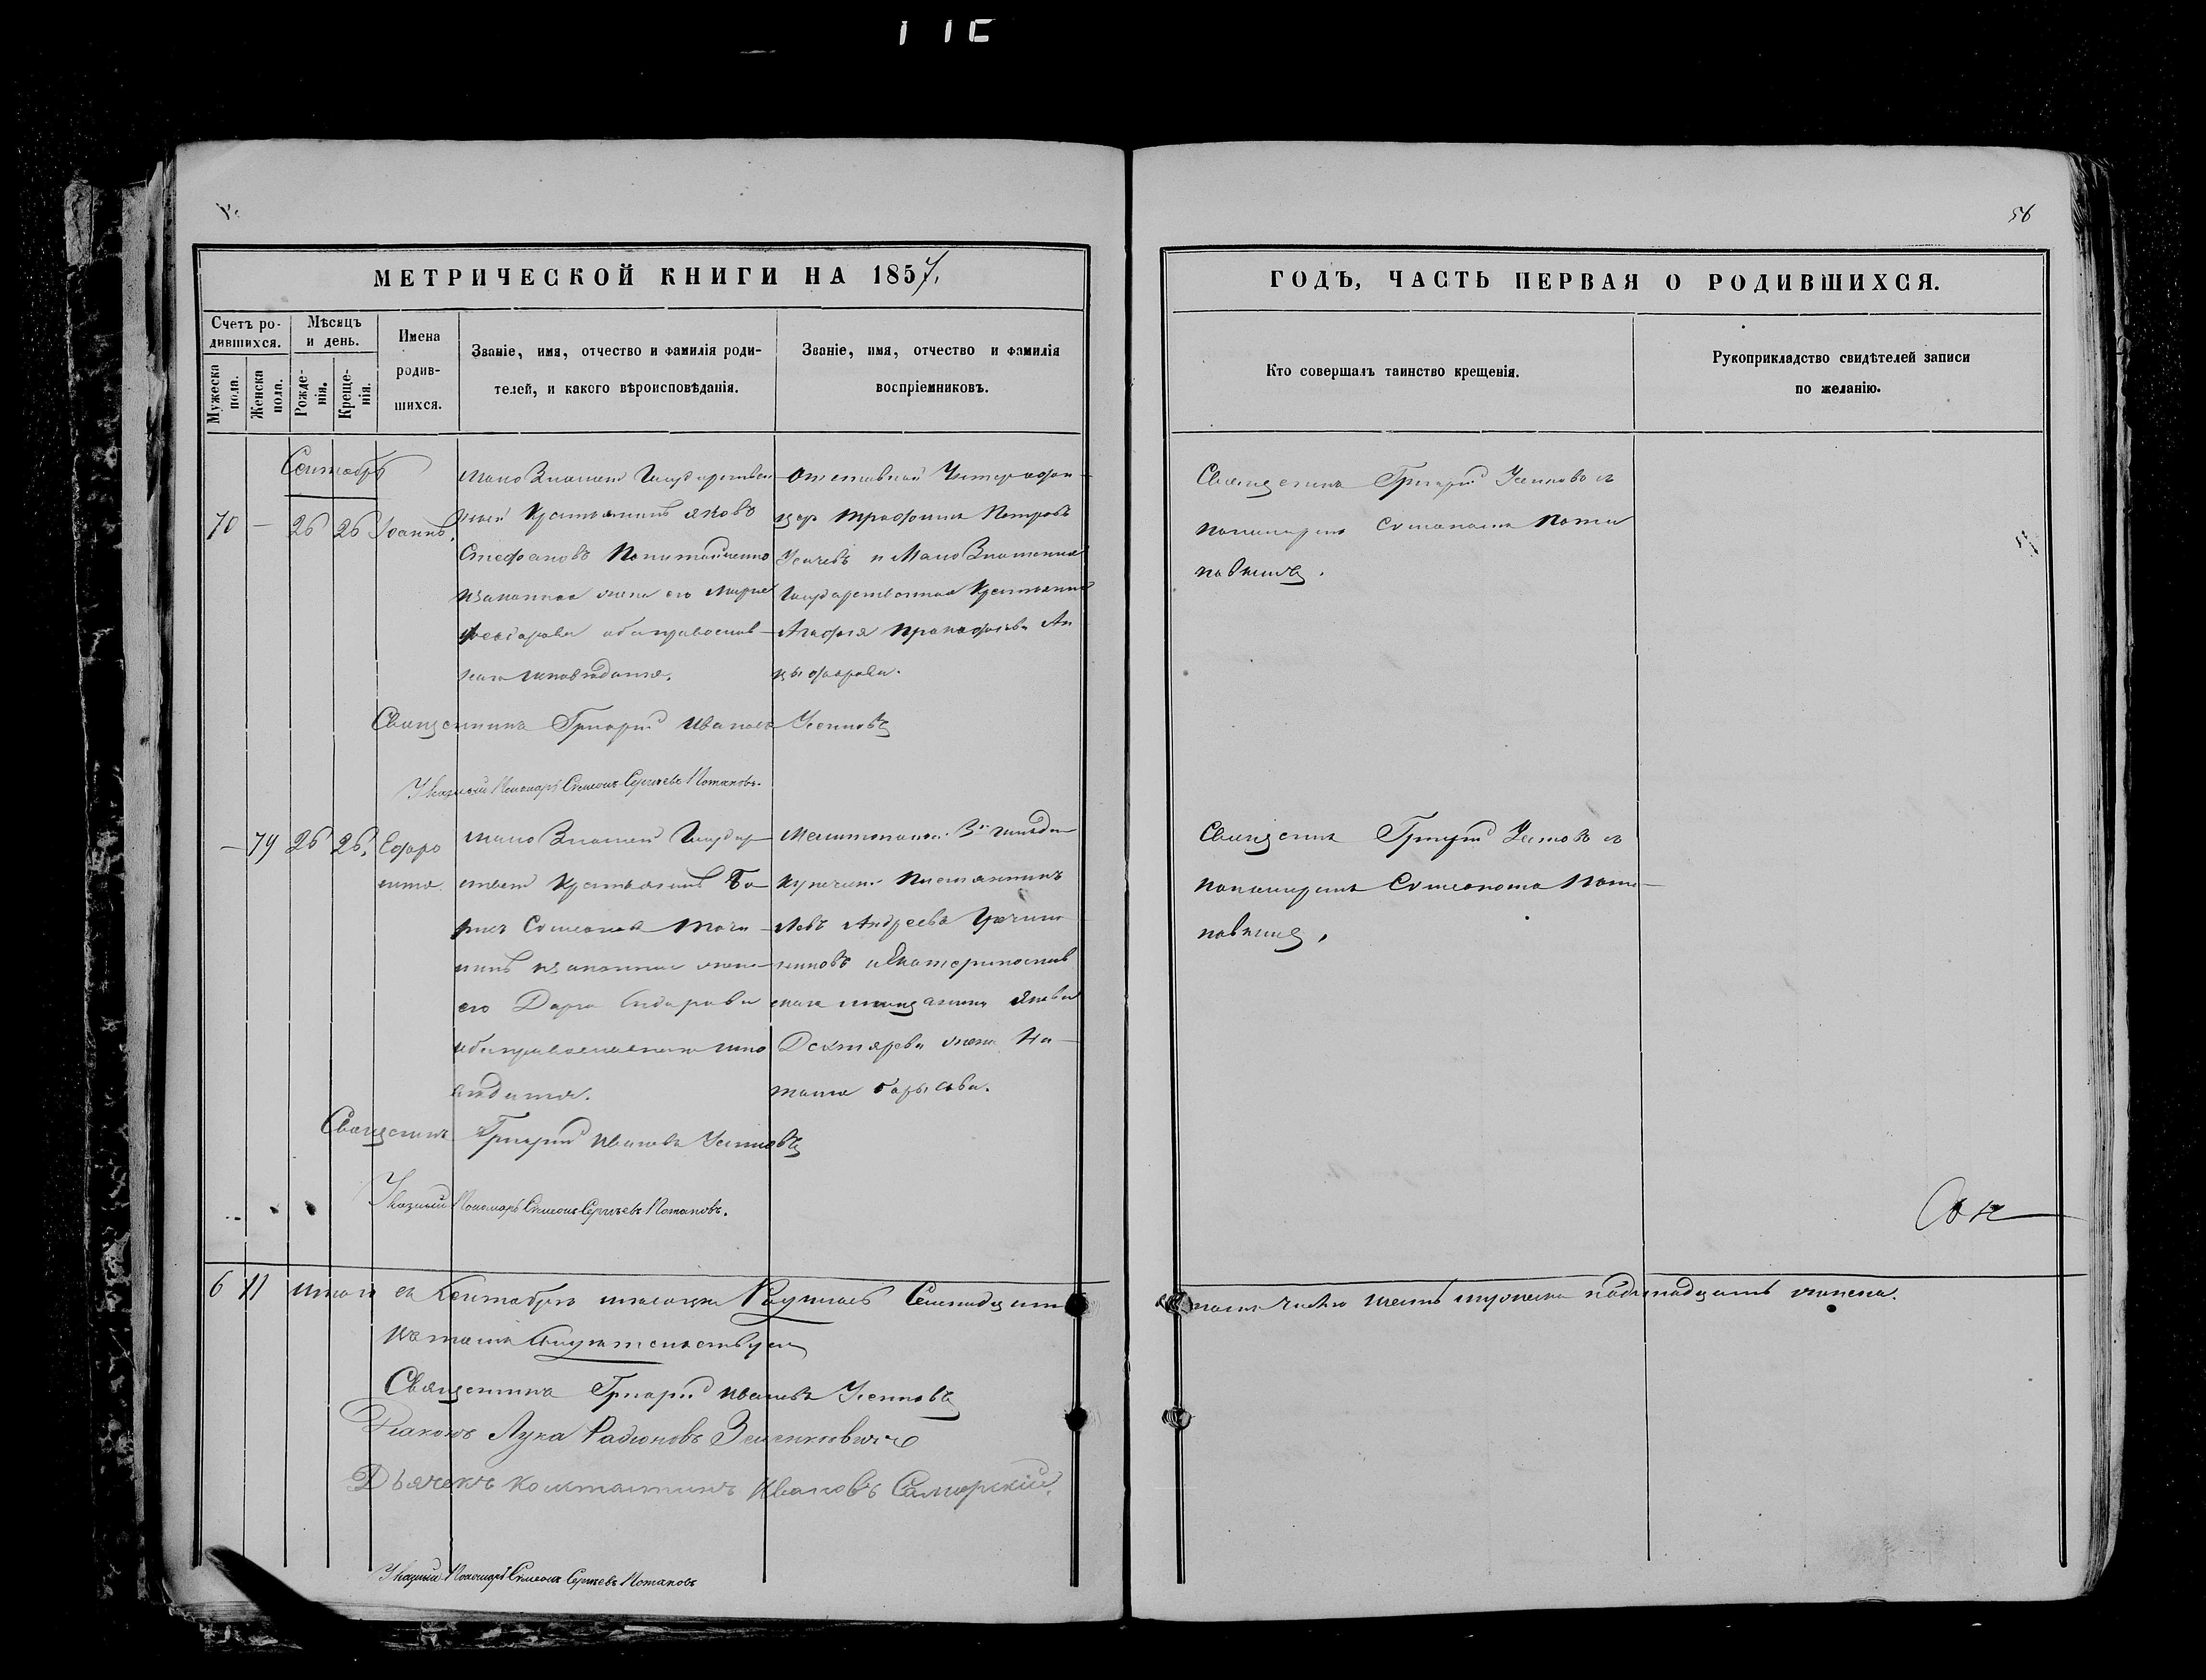 56
МЕТРИЧЕСКОЙ КНИГИ НА 1857,
ГОДЪ, ЧАСТЬ ПЕРВАЯ О РОДИВШИХСЯ.
Счетъ ро-
дившихся.
Мужеска
пола.
Женска
пола.
Мѣсяцъ
и день.
Рожде-
нія.
Креще-
нія.
Имена
родив-
шихся.
Званіе, имя, отчество и фамилія роди-
телей, и какого вѣроисповѣданія.
Званіе, имя, отчество и фамилія
воспріемниковъ.
Кто совершалъ таинство крещенія.
Рукоприкладство свидѣтелей записи
по желанію.
Сентябрь
70 — 26 26 Іоаннъ.
Мало Знаменс Государствен
ный Крестьянинъ Яковъ
Стефановъ
изаконная жена его Марія
Феодорова обаправослав
наго исповѣданія.
Отставной Унтерофи
церъ Трофимъ Петровъ
Усачевъ и Мало Знаменская
Государственная Крестьянка
Агафія Прокофьева Ан
цыферова.
Священникъ Григорій съ
пономаремъ Симеономъ Пота
повымъ.
Священникъ Григорій Ивановъ
Указный Пономарь Симеонъ Сергѣевъ Потаповъ.
— 79 26 26. Ефро
синія.
Мало Знаменс Государ
ственн Крестьянинъ Бо
рисъ Симеоновъ
изаконная жена
его Дарія Сидорова
обаправославнаго испо
вѣданія.
Мелитополь. 3й гильдіи
Купечески Племянникъ
Левъ Андреевъ
иЕкатеринослав
скаго мѣщанина Якова
Дехтярева жена На
талія Борысова.
Священникъ Григорій съ
пономаремъ Симеономъ Пота
повымъ.
Священникъ Григорій Ивановъ
Указный Пономарь Симеонъ Сергѣевъ Потаповъ.
6 11 Итого въ Сентябрѣ мѣсяцѣ Родилось Семнадцать
томъ числѣ шесть мужеска иодинадцать женска.
Въ томъ Свидѣтельствуемъ
Священникъ Григорій Ивановъ
Діаконъ Лука Радіоновъ
Дьячекъ Константинъ Ивановъ Самарскій.
Указный Пономарь Симеонъ Сергѣевъ Потаповъ